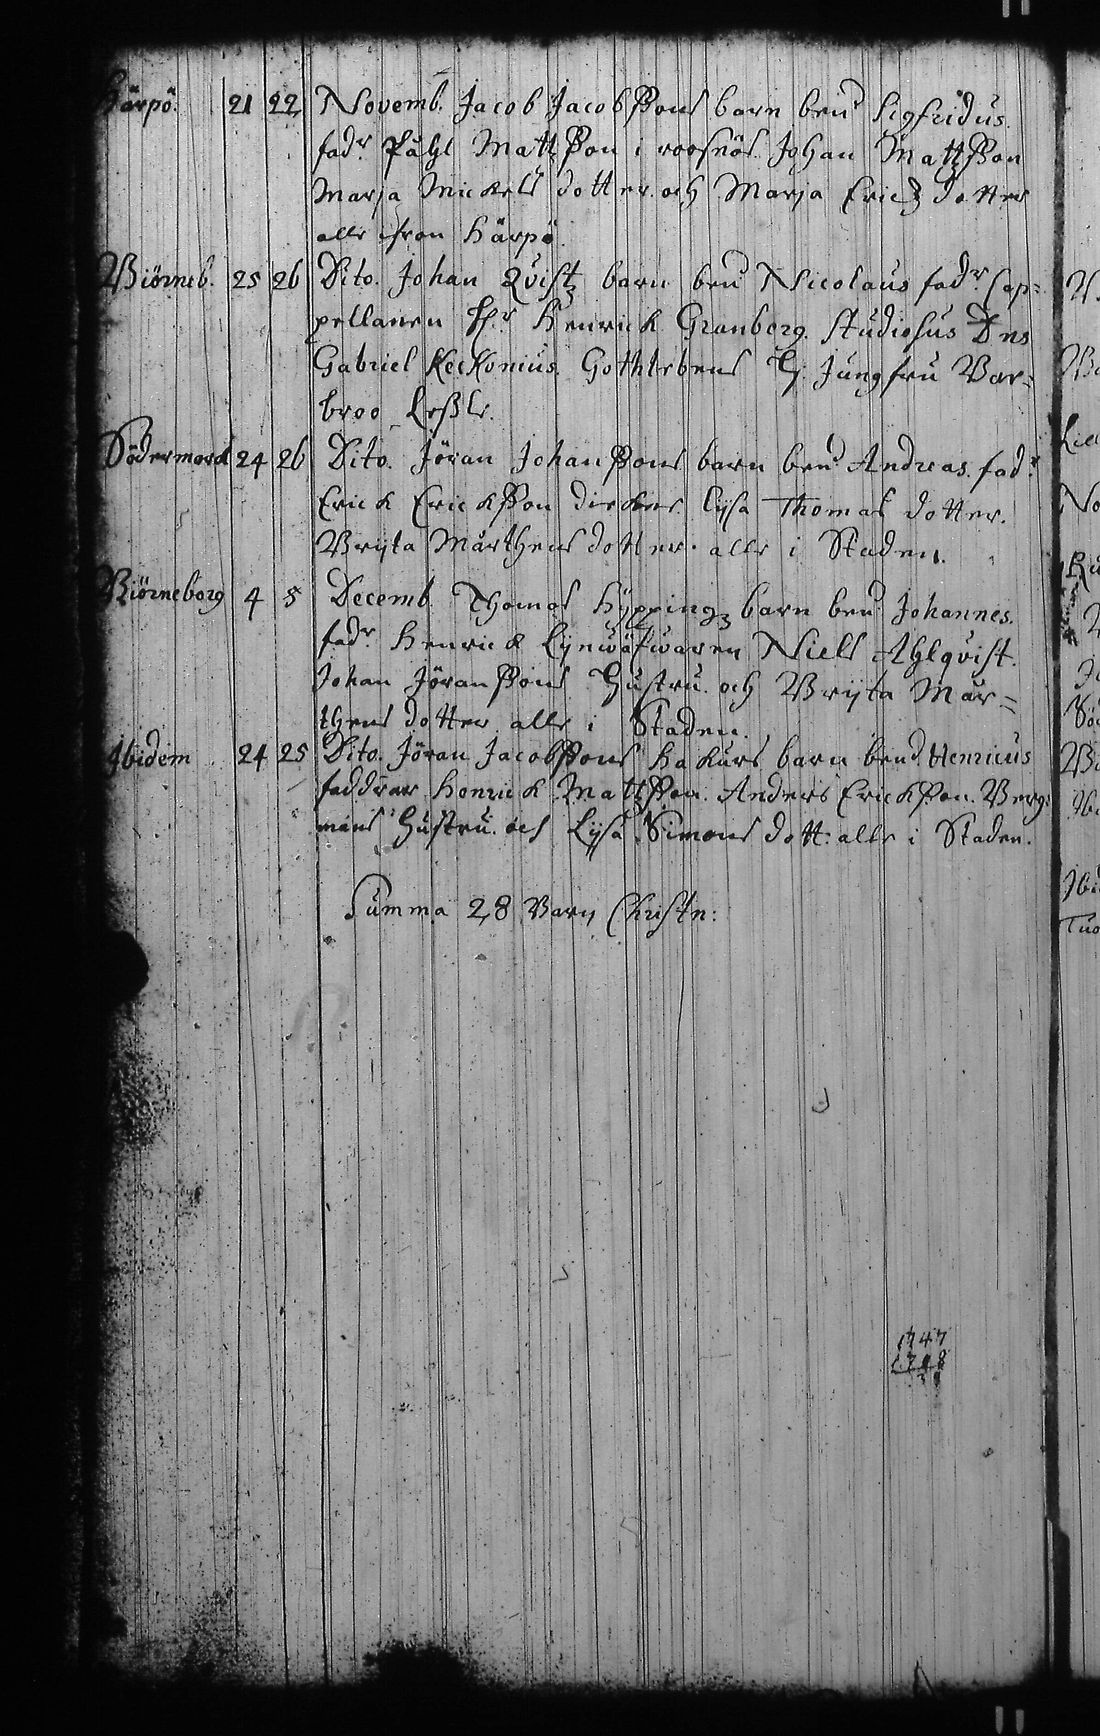 Härpö. 21 22 Novemb. Jacob Jacobßons barn bend Sigfridus.
fadr. Påhl Mattßon i roosnäs. Johan Mattßon
Marja Mickels dotter och Marja Ericz dotter
alle ifron Härpö.
Biörneb. 25 26 Dito. Johan Qvistz barn bend Nicolaus fadr. Cap=
pellanen Hr. Henrick Granberg. Studiosus Dns
Gabriel Keckonius. Jungfru Bar=
broo
Södermark 24 26 Dito. Jöran Johanßons barn bend Andreas. fadr.
Erick Erickßon Lijsa Thomas dotter.
Brijta Mårthens dotter. alle i Staden.
Biörneborg 4 5 Decemb. Thomas Hyppingz barn bend Johannes.
fadr. Henrick Lijnwäfwaren Niels Ahlqvist.
Johan Jöranßons Hustru. och Brijta Mår=
thens dotter alle i Staden.
Ibidem 24 25 Dito. Jöran Jacobßons Hakurs barn bend. Henricus
faddrar Henrick Mattßon. Anders Erickßon. Berg=
mans Hustru. och Lijsa Simons dott. alle i Staden.
Summa 28 Barn Christn:
1747